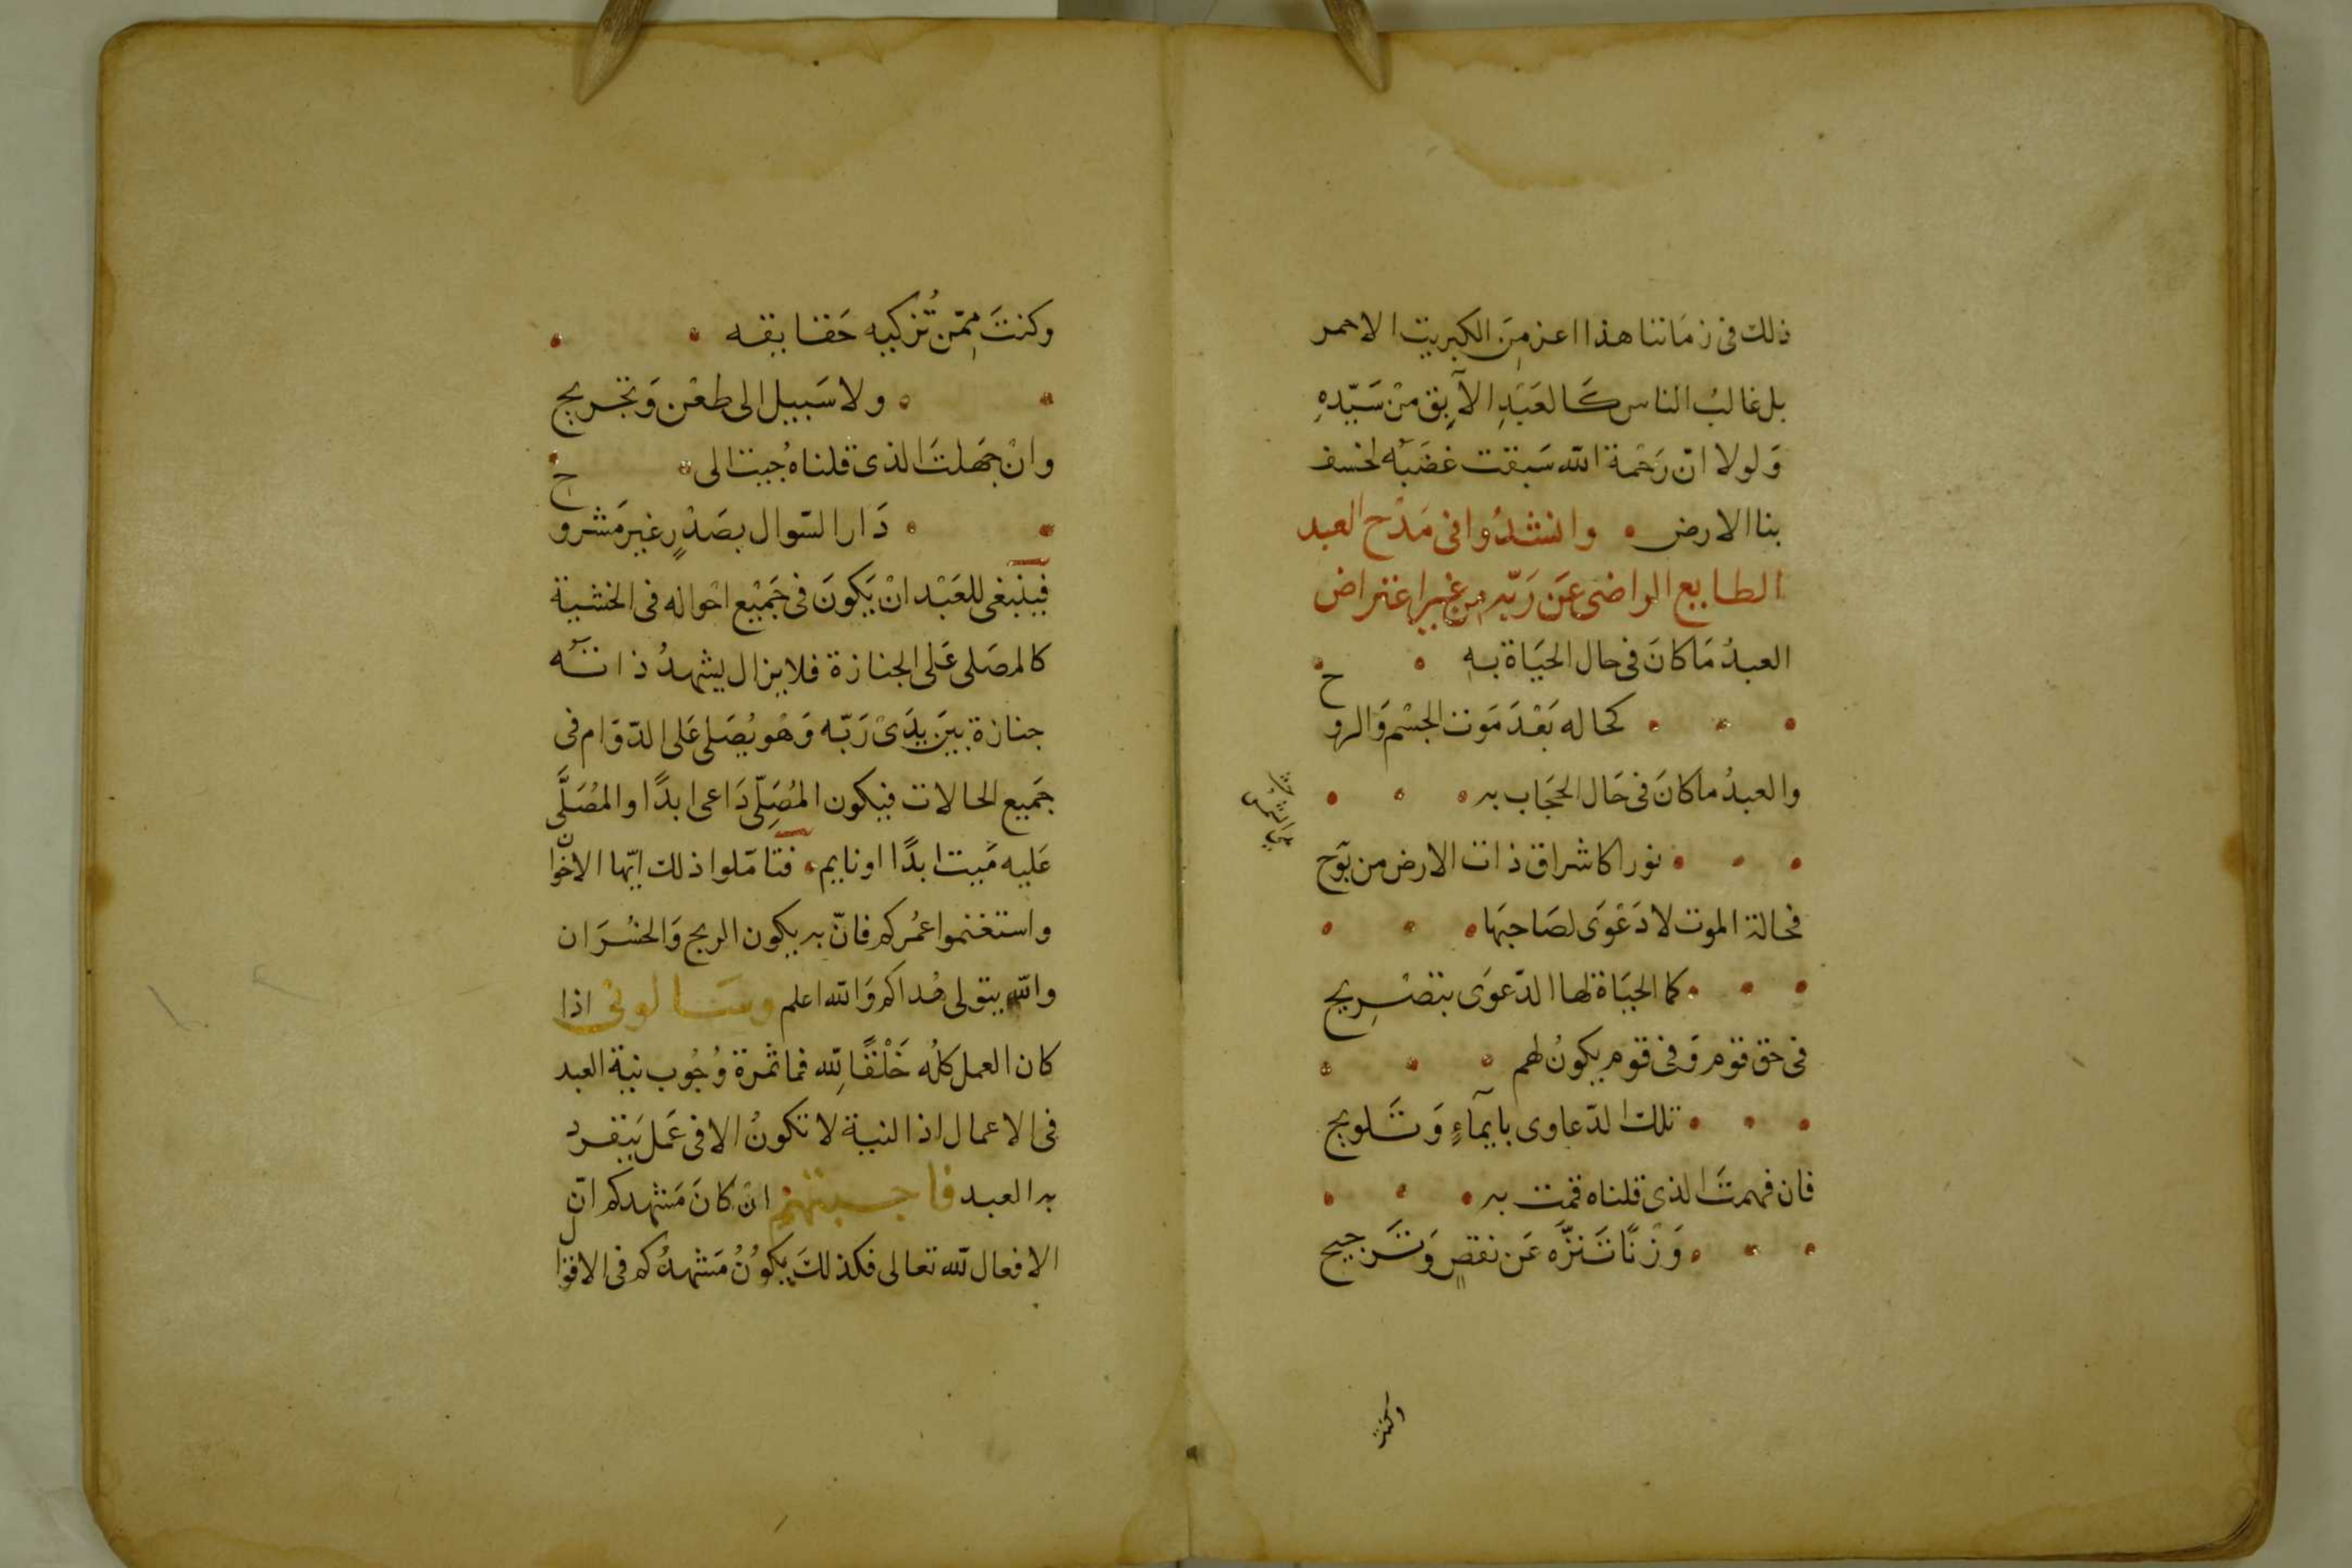 ذلك فى زمَاننا هذا اعز مِنَ الكبريت الاحمر
بل غالبُ الناس كَالعَبْدِ الآبِق مِنْ سَيّدِهِ
وَلولا انّ رَحْمة الله سَبقت غضَبَه لخسف
بنا الارض وانشدُوا فى مَدْح العبد
الطايع الراضى عَن رَبّه مِن غير اعتراض
العبدُ مَا كانَ فى حال الحيَاة بهِ
كحاله بَعْدَ مَوت الجسْم وَالروح
والعبدُ ما كانَ فى حَال الحجَاب به
نورا كاشراق ذات الارض من بوّح
فحالة الموت لا دَعْوَى لصَاحبَها
كما الحيَاة لها الدّعوَى بتصْرِيح
فى حق قوم وَفى قوم يكونُ لهم
تلك الدّعاوى بايمآءٍ وَتَلويح
فان فهمتَ الذى قلناه قمت به
وَزْنًا تَنزَّه عَن نقصٍ وَتَرجيح
وكنت
وكنتَ مِمّن تُزكيه حَقايقه
ولا سَبيل الى طعْن وَتجريح
وانْ جَهلتَ الذى قلناه جُيت الى
دَار السّوال بصَدْرٍ غير مَشروح
فينبغى للعَبْد انْ يَكونَ فى جَميْع احْواله فى الخشية
كالمصَلى عَلى الجنازة فلا يزال يشهدُ ذاتَه
جنازة بيَن يدَىْ رَبّه وَهُو يُصَلى عَلى الدّوَام فى
جَميع الحالات فيكون المُصَلِّى دَاعى ابدًا والمُصَلَّى
عَليه مَيت ابدًا او نايم فتامّلوا ذلك ايّها الاخوان
واستغنموا عمُركم فانّ به يكون الربح وَالخسْرَان
والله يتولى هُداكم وَالله اعلم وسَالونى اذا
كان العمل كلُه خَلْقًا لِله فما ثمرة وُجُوب نية العبد
فى الاعمال اذ النية لا تكونُ الا فى عَمل يَنفرد
به العبد فاجبتهم انْ كانَ مَشهدكم انّ
الافعال لله تعالى فكذلك يَكوُنُ مَشهدُكم فى الاقوال